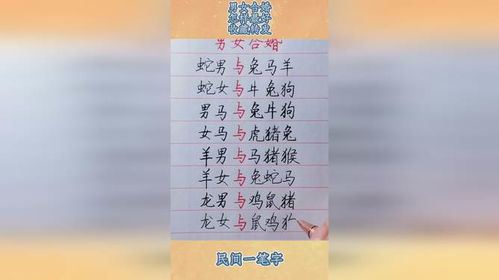 男女合婚
怎样最好
收藏转发
男女合婚
蛇男与兔马羊
蛇女与牛兔狗
男马与兔牛狗
女马与虎猪兔
羊男与马猪猴
羊女与兔蛇马
龙男与鸡鼠猪
龙女与鼠鸡狗
民间一笔字